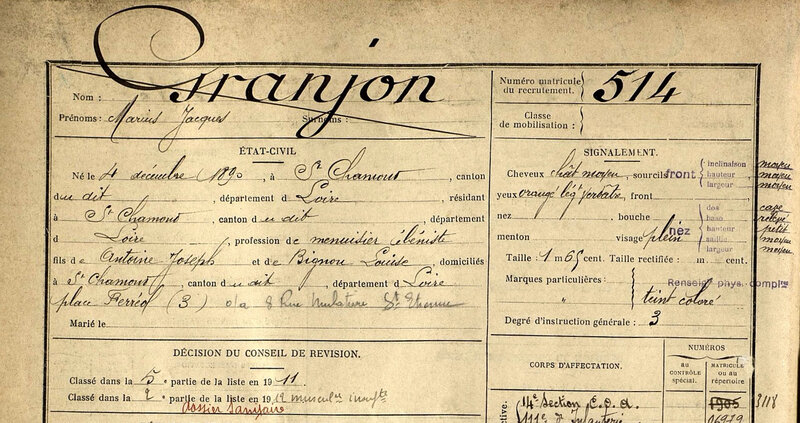 Granjon
Nom :
Prénoms : Marius Jacques Surnoms :
Numéro matricule du recrutement. 514
Classe de mobilisation :
ÉTAT-CIVIL
Né le 4 décembre 1890, à St Chamond, canton
du dit, département d Loire, résidant
à St Chamond, canton du dit, département
d Loire, profession de menuisier ébéniste
fils de Antoine Joseph et de Bignou Louise, domiciliés
à St Chamond, canton du dit, départemt d Loire
place Ferréol (3) 8 Rue Mulatière St Etienne
Marié le
SIGNALEMENT.
Cheveux chât moyen, sourcils
yeux orangé, front
nez, bouche
menton visage plein
Taille : 1 m 65 cent. Taille rectifiée : m. cent.
Marques particulières :
teint coloré
Degré d'instruction générale : 3
front
inclinaison moyen
hauteur moyen
largeur moyen
nez
dos cave
base relevé
hauteur petit
saillie moyen
largeur moyen
Renseigts phys. complres
DÉCISION DU CONSEIL DE REVISION.
Classé dans la 5e partie de la liste en 1911
Classé dans la 2e partie de la liste en 1912
dossier sanitaire
CORPS D'AFFECTATION.
NUMÉROS
au CONTRÔLE spécial.
MATRICULE ou au répertoire
14e Section
1905 3118
111e d'Infanterie
06929